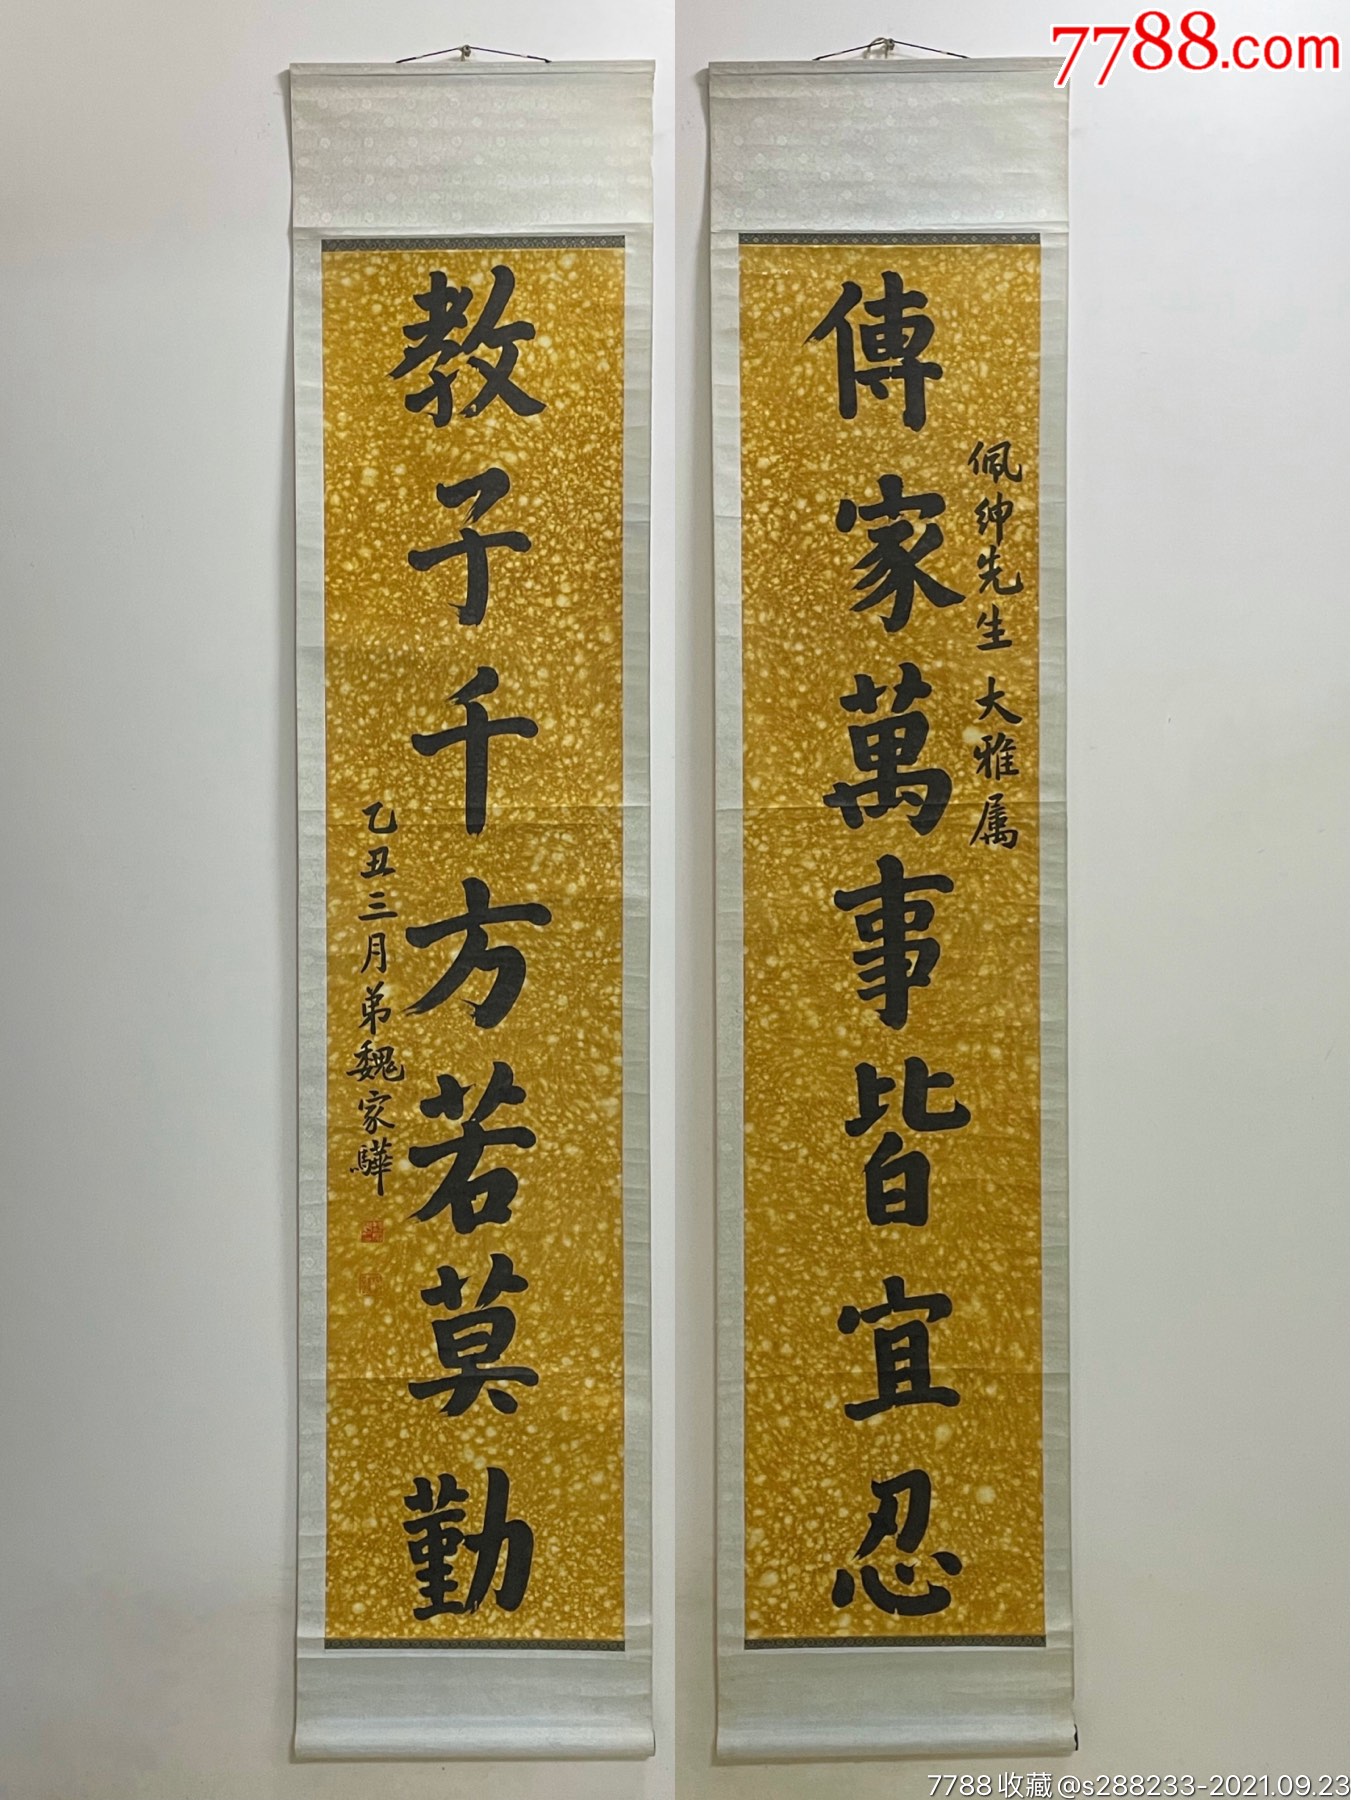 7788.com
傳家萬事皆宜忍
佩紳先生 大雅属
教子千方若莫勤
乙丑三月弟魏家驊
7788收藏@s288233-2021.09.23